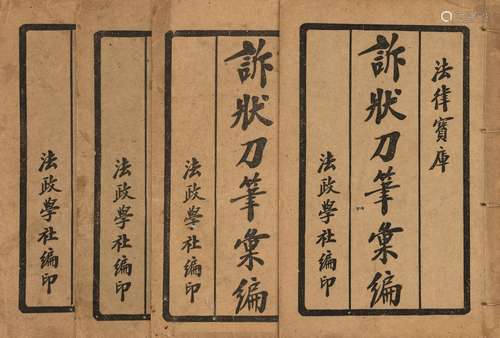 法律寳庫
訴狀刀筆彙編
法政學社編印
訴狀刀筆彙編
法政學社編印
法政學社編印
法政學社編印